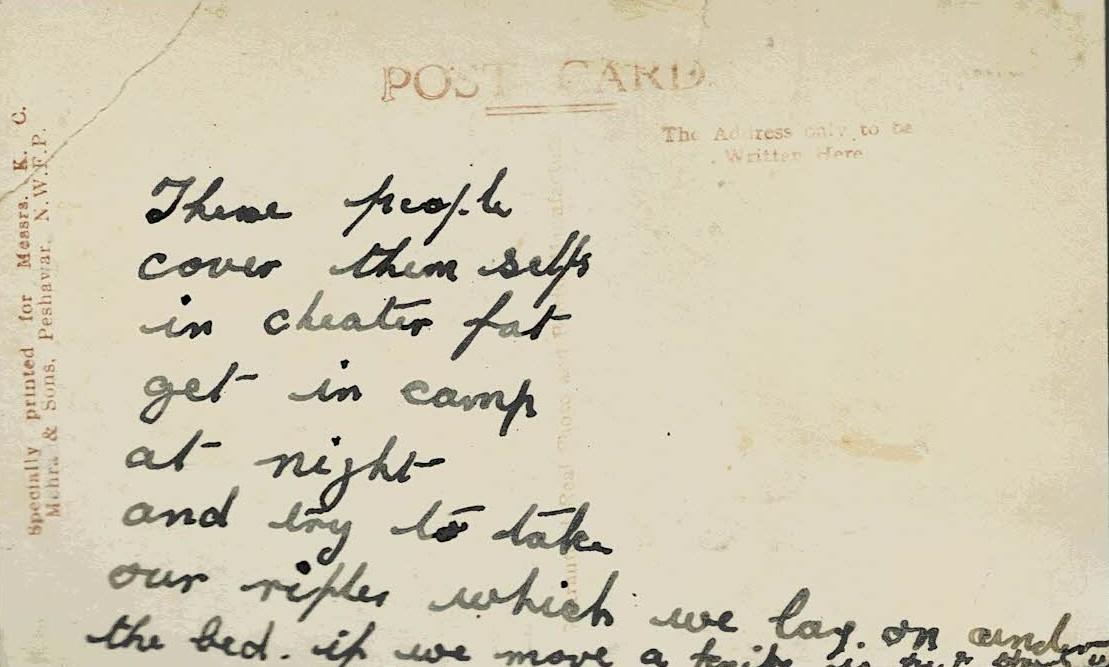 POST CARD
The Address only to be
Written Here
Specially printed for Messrs. K. C.
Mehra & Sons, Peshawar, N.W.F.P.
These people
cover them selfs
in cheater fat
get in camp
at night
and try to take
our rifles which we lay. on under
the bed. if we move a knife is put